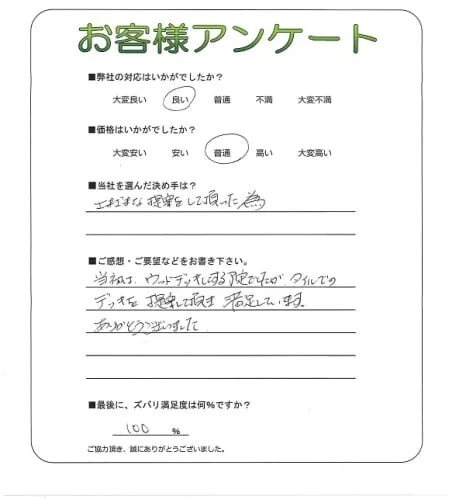 お客様アンケート
■弊社の対応はいかがでしたか？
大変良い 良い 普通 不満 大変不満
■価格はいかがでしたか？
大変安い 安い 普通 高い 大変高い
■当社を選んだ決め手は？
な提案をして頂いた為
■ご感想・ご要望などをお書き下さい。
当初は、ウッドデッキにする予定でしたが、タイルでの
デッキを提案して頂き満足しています。
ありがとうございました
■最後に、ズバリ満足度は何％ですか？
100 ％
ご協力頂き、誠にありがとうございました。